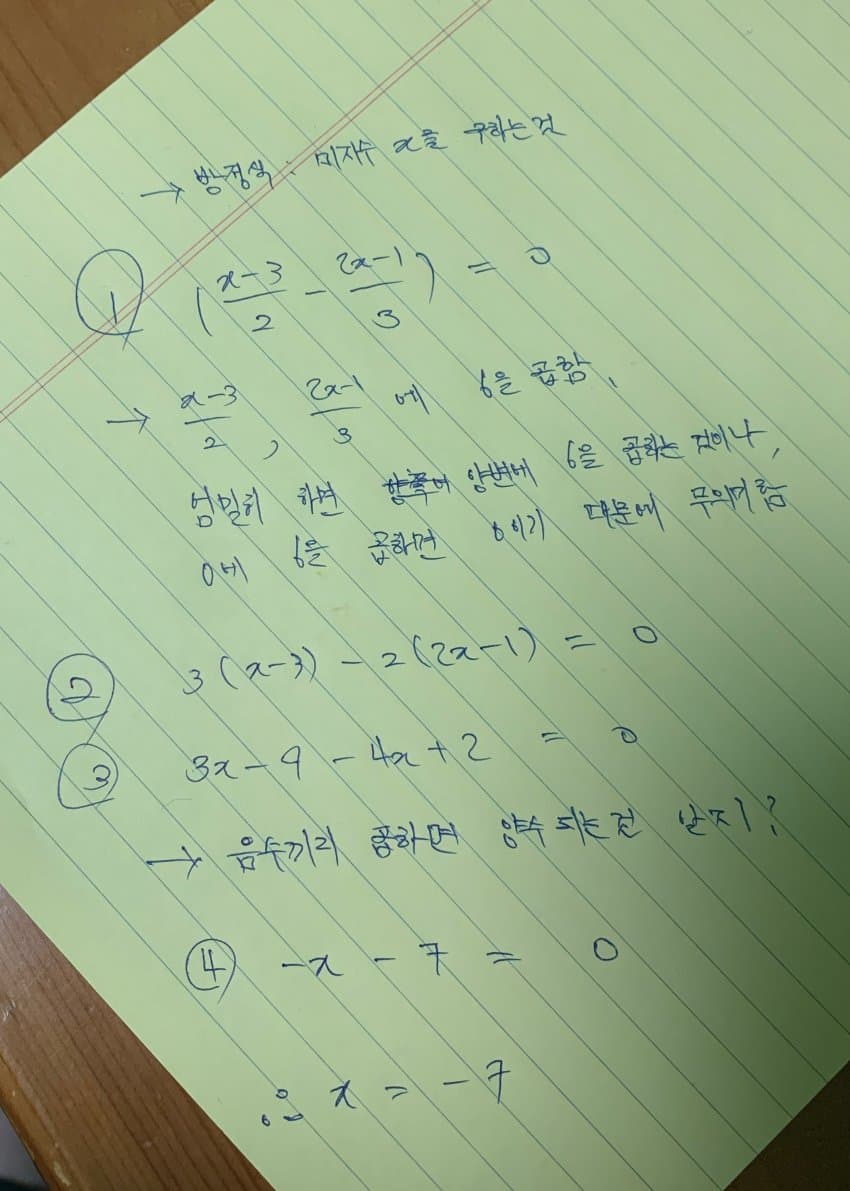 → 방정식 : 미지수 x을 구하는것
① ( x-3/2 - 2x-1/3 ) = 0
→ x-3/2 , 2x-1/3 에 6을 곱함,
엄밀히 하면 양변에 6을 곱하는 것이나,
0에 6을 곱하면 0이기 때문에 무의미함
② 3(x-3) - 2(2x-1) = 0
③ 3x-9 - 4x+2 = 0
→ 음수끼리 곱하면 양수되는건 알지?
④ -x - 7 = 0
∴ x = -7